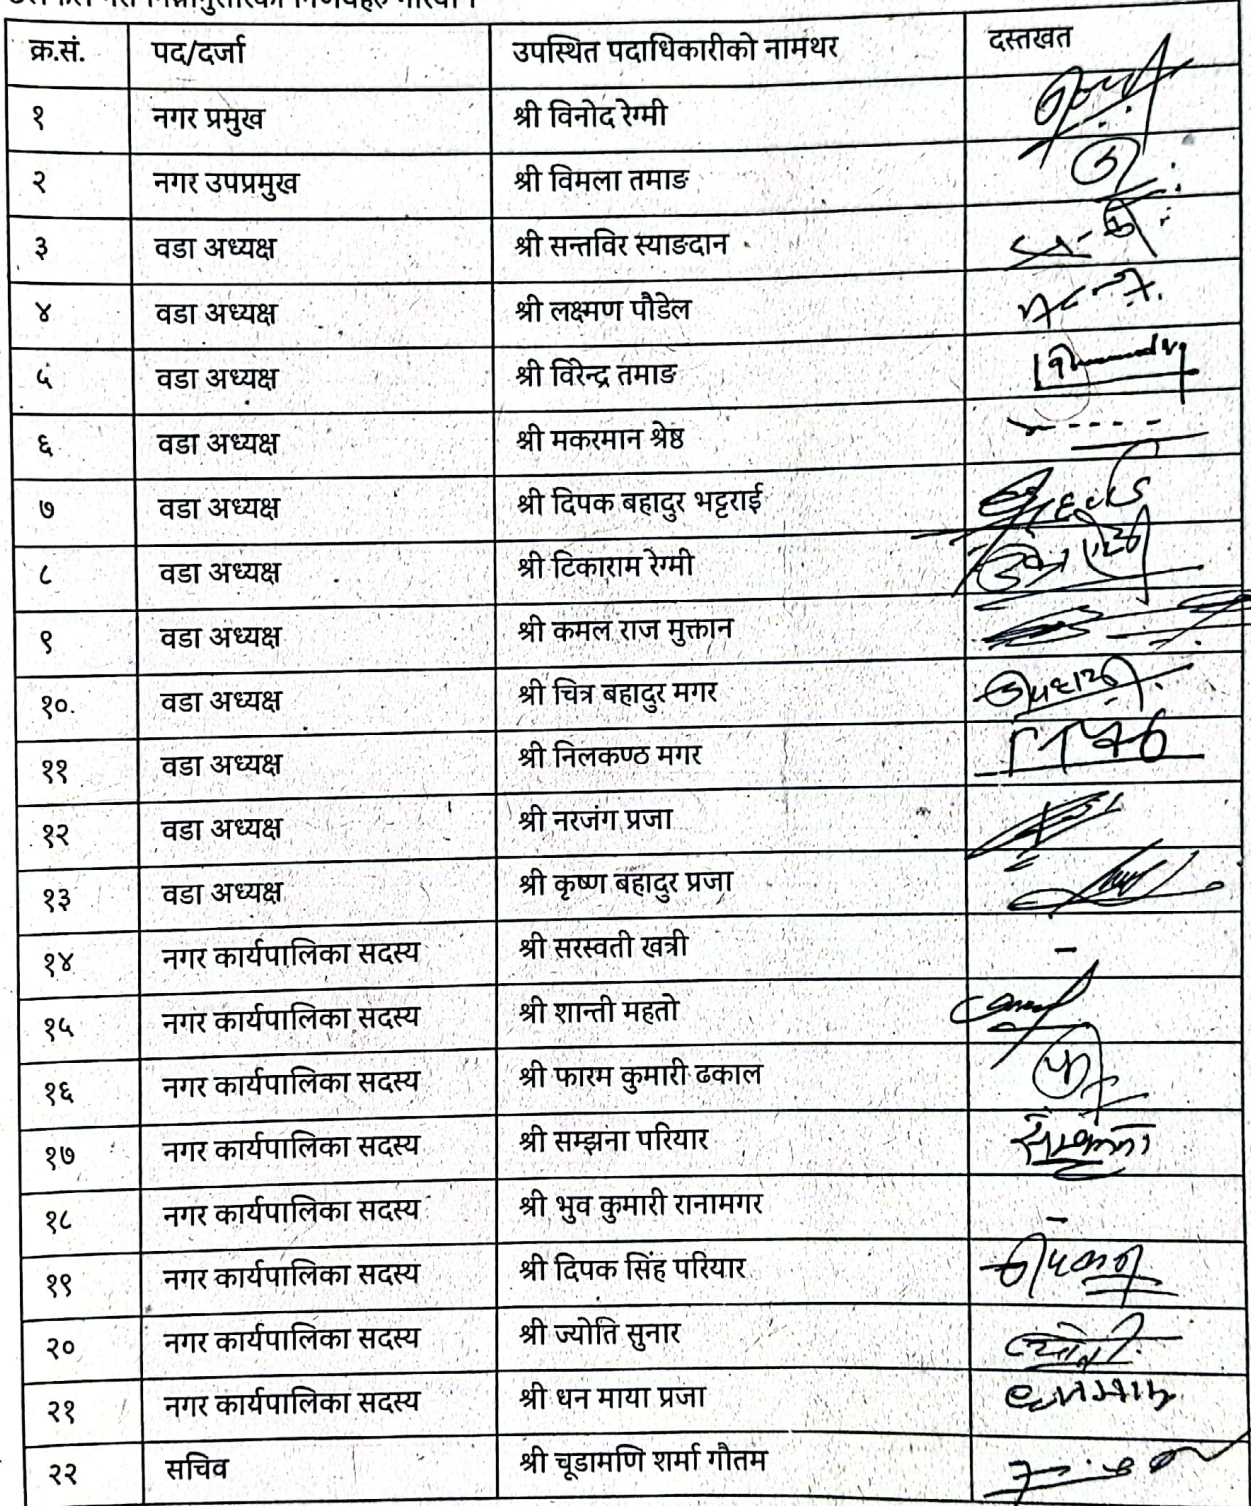 क्र.सं. पद/दर्जा उपस्थित पदाधिकारीको नामथर दस्तखत
१ नगर प्रमुख श्री विनोद रेग्मी
२ नगर उपप्रमुख श्री विमला तमाङ
३ वडा अध्यक्ष श्री सन्तविर स्याङदान
४ वडा अध्यक्ष श्री लक्ष्मण पौडेल
५ वडा अध्यक्ष श्री विरेन्द्र तमाङ
६ वडा अध्यक्ष श्री मकरमान श्रेष्ठ
७ वडा अध्यक्ष श्री दिपक बहादुर भट्टराई
८ वडा अध्यक्ष श्री टिकाराम रेग्मी
९ वडा अध्यक्ष श्री कमल राज मुक्तान
१० वडा अध्यक्ष श्री चित्र बहादुर मगर
११ वडा अध्यक्ष श्री निलकण्ठ मगर
१२ वडा अध्यक्ष श्री नरजंग प्रजा
१३ वडा अध्यक्ष श्री कृष्ण बहादुर प्रजा
१४ नगर कार्यपालिका सदस्य श्री सरस्वती खत्री -
१५ नगर कार्यपालिका सदस्य श्री शान्ती महतो
१६ नगर कार्यपालिका सदस्य श्री फारम कुमारी ढकाल
१७ नगर कार्यपालिका सदस्य श्री सम्झना परियार
१८ नगर कार्यपालिका सदस्य श्री भुव कुमारी रानामगर -
१९ नगर कार्यपालिका सदस्य श्री दिपक सिंह परियार
२० नगर कार्यपालिका सदस्य श्री ज्योति सुनार
२१ नगर कार्यपालिका सदस्य श्री धन माया प्रजा
२२ सचिव श्री चूडामणि शर्मा गौतम